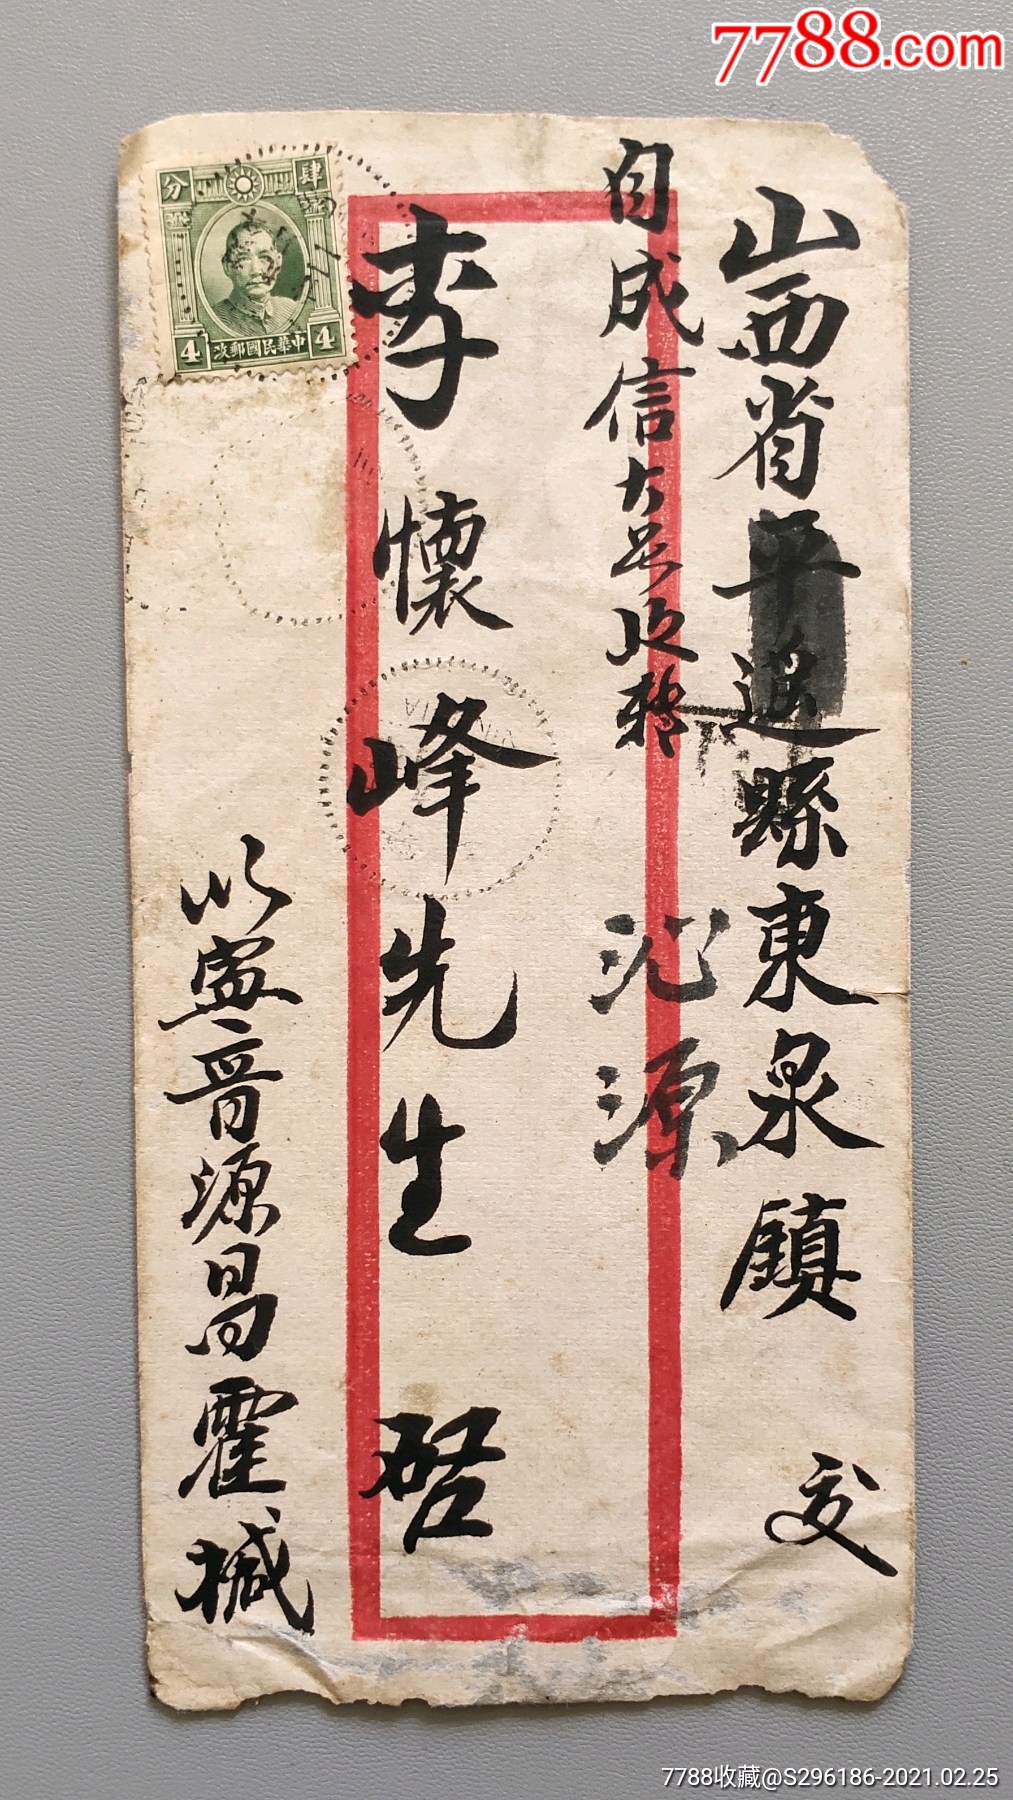 7788.com
山西省平遥縣東泉鎮 交
自成信大号收轉
沁源
李懷峰先生 啓
以寧晋源昌霍械
分 肆
4 中華民國郵政 4
7788收藏@S296186-2021.02.25